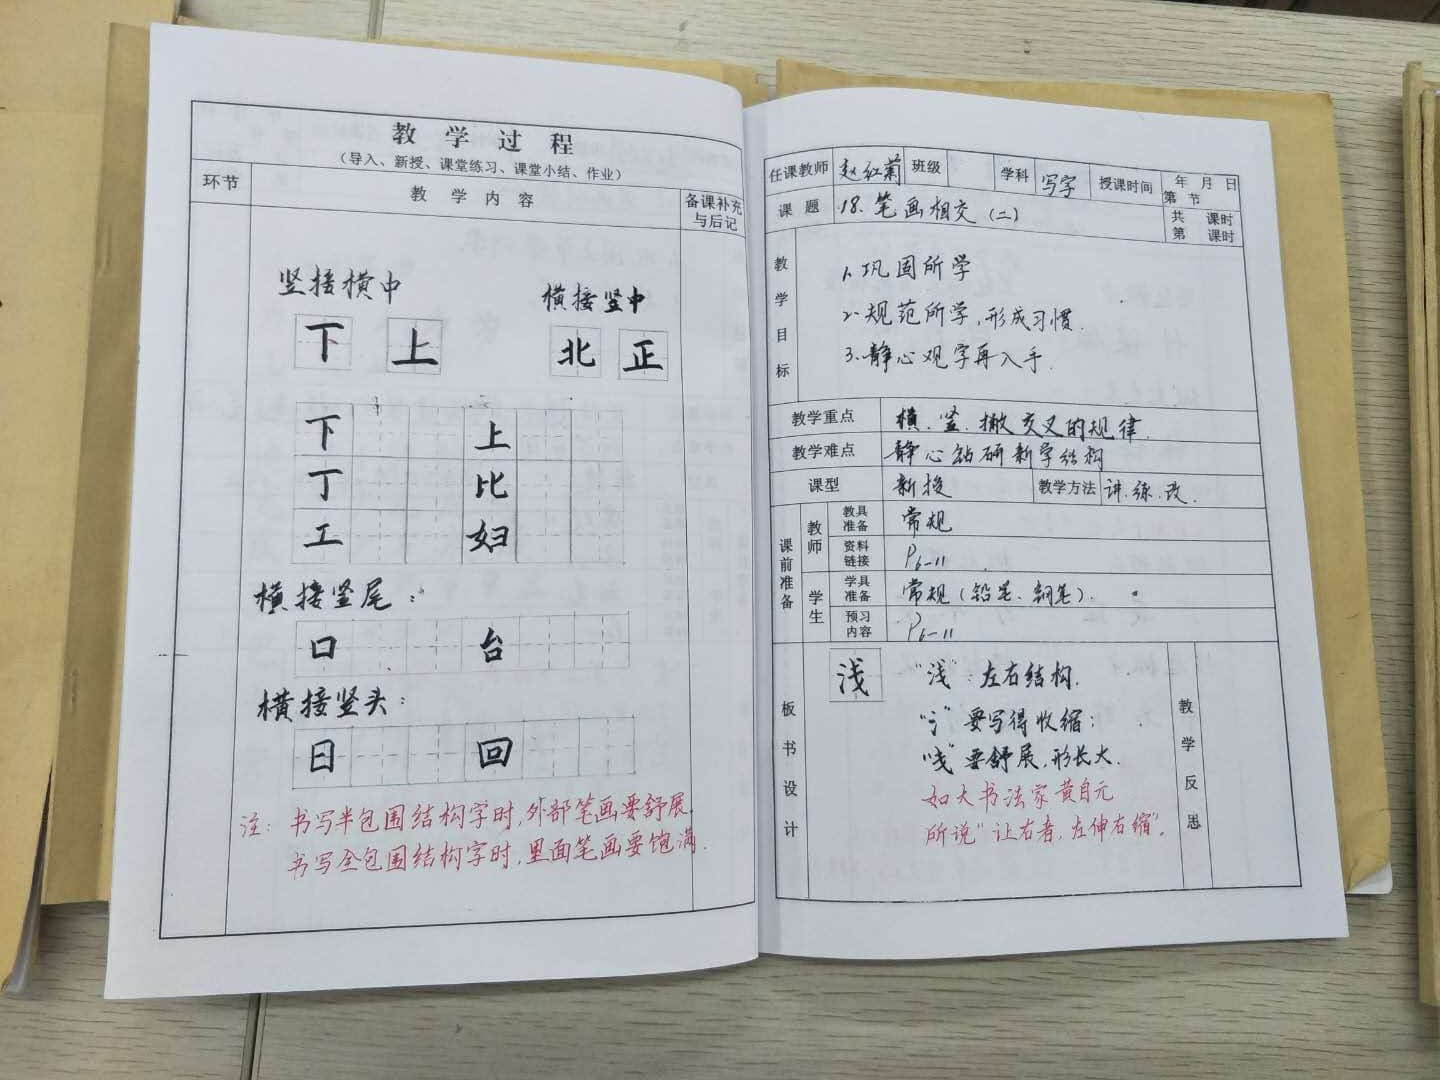 教学过程
（导入、新授、课堂练习、课堂小结、作业）
环节 教学内容 备课补充与后记
竖接横中 横接竖中
下 上 北 正
下 上
丁 比
工 妇
横接竖尾：
口 台
横接竖头：
日 回
注：书写半包围结构字时，外部笔画要舒展.
书写全包围结构字时，里面笔画要饱满.
任课教师 赵红菊 班级 学科 写字 授课时间 年 月 日 第 节
课题 18.笔画相交（二） 共 课时 第 课时
教学目标
1.巩固所学
2.规范所学，形成习惯.
3.静心观字再入手.
教学重点 横、竖、撇交叉的规律.
教学难点 静心钻研新学结构
课型 新授 教学方法 讲.练.改.
课前准备
教师 教具准备 常规
资料链接 P6-11
学生 学具准备 常规（铅笔、钢笔）.
预习内容 P6-11
板书设计
浅 "浅"：左右结构.
"氵"要写得收缩；
"戋"要舒展，形长大.
如大书法家黄自元
所说"让右者，左伸右缩".
教学反思